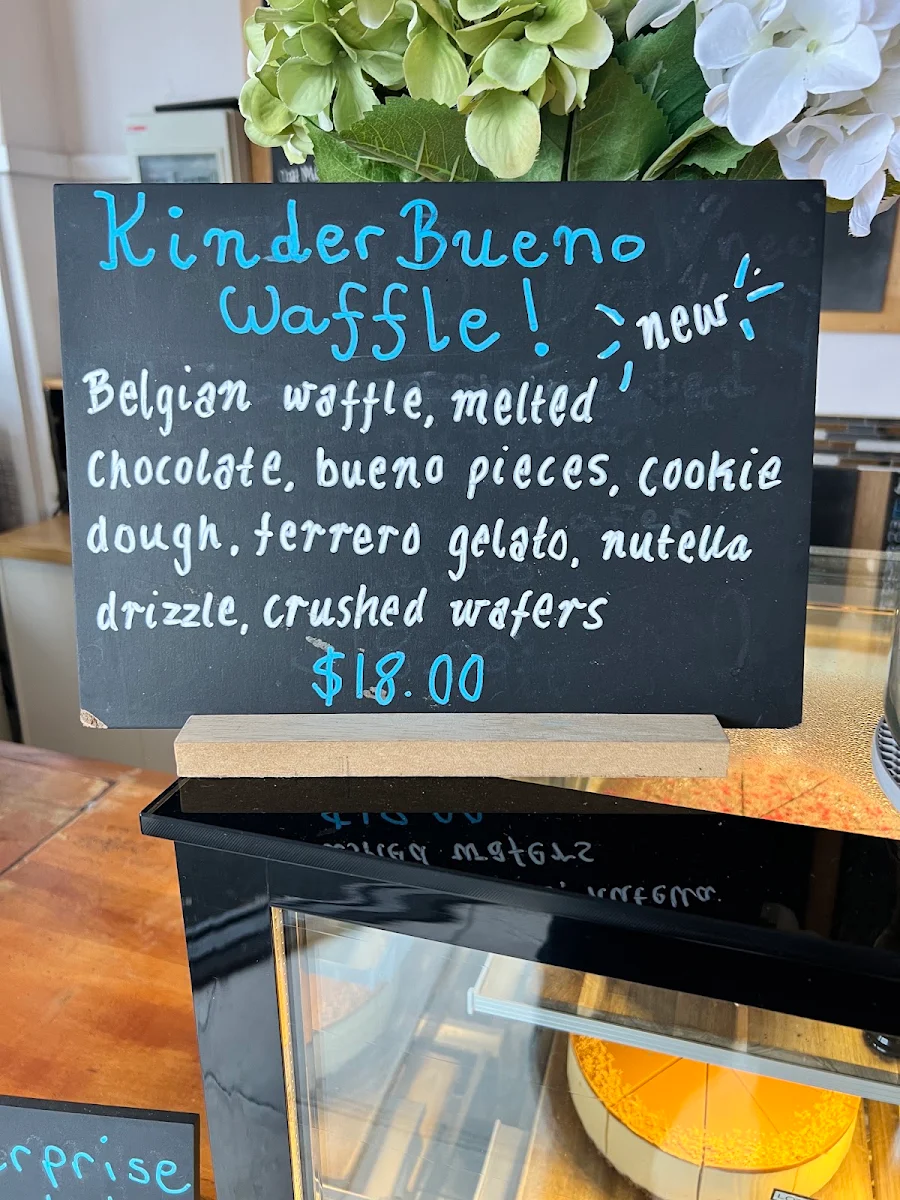 Kinder Bueno
Waffle!
new
Belgian waffle, melted
chocolate, bueno pieces, cookie
dough, ferrero gelato, nutella
drizzle, crushed wafers
$18.00
rprise